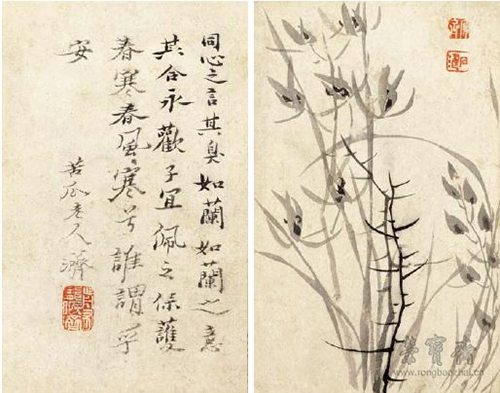 同心之言其臭如蘭如蘭之意
其合永歡子宜佩之保護
春寒春風風寒兮誰謂孚
安
苦瓜老人濟
榮寶齋
www.rongbaozhai.cn